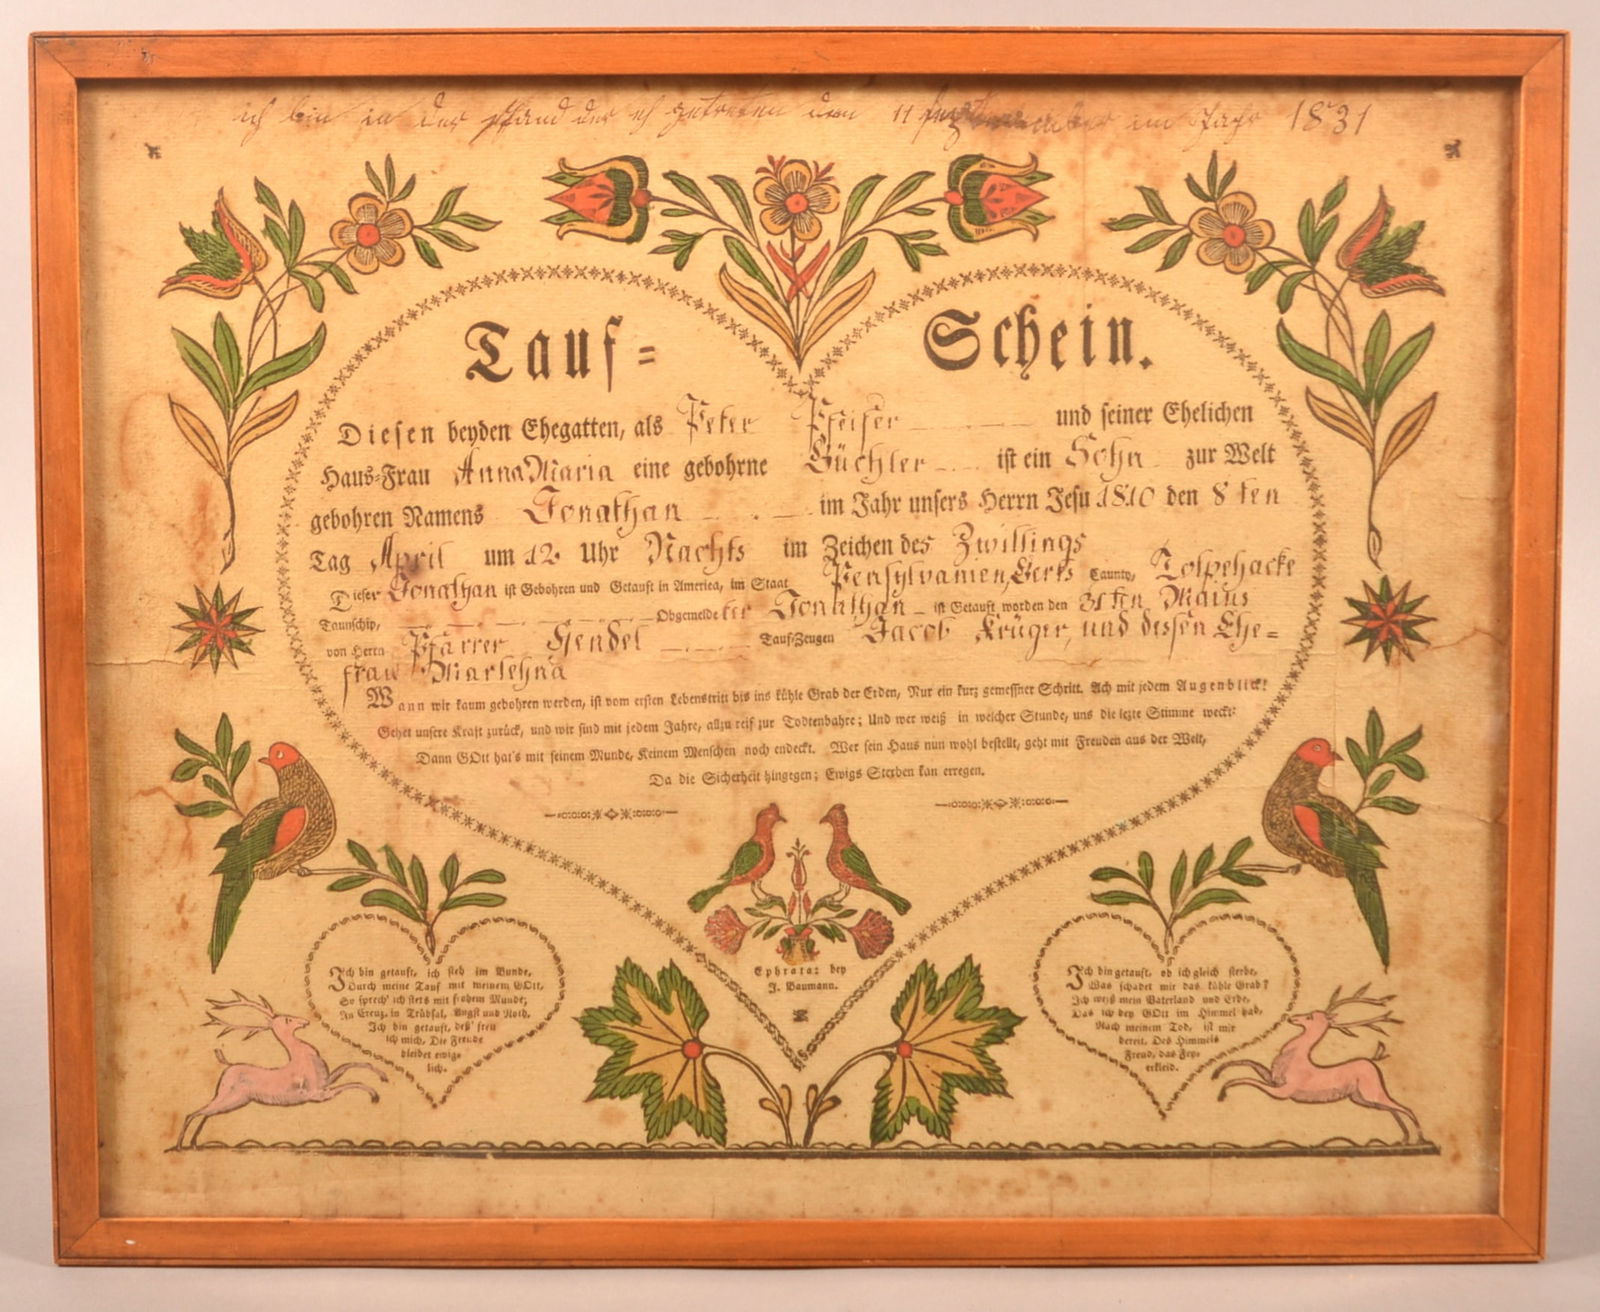 ich bin in der stand der eh getreten den 11 im Jahr 1831
Tauf= Schein.
Diesen beyden Ehegatten, als Peter Pfeifer und seiner Ehelichen
Haus-Frau Anna Maria eine gebohrne Büchler ist ein Sohn zur Welt
gebohren Namens Jonathan im Jahr unsers Herrn Jesu 1810 den 8ten
Tag April um 12 Uhr Nachts im Zeichen des Zwillings
Dieser Jonathan ist Gebohren und Getauft in America, im Staat Pensylvanien, Berks Caunty, Tolpehacke
Taunschip, Obgemeldeter Jonathan ist Getauft worden den 31ten Maius
von Herrn Pfarrer Hendel Tauf-Zeugen Jacob Krüger, und dessen Ehe=
frau Marlehna
Wann wir kaum gebohren werden, ist vom ersten Lebenstritt bis ins kühle Grab der Erden, Nur ein kurz gemessner Schritt. Ach mit jedem Augenblick!
Gehet unsere Kraft zurück, und wir sind mit jedem Jahre, allzu reif zur Todtenbahre; Und wer weiß in welcher Stunde, uns die lezte Stimme weckt:
Dann GOtt hat's mit seinem Munde, Keinem Menschen noch endeckt. Wer sein Haus nun wohl bestellt, geht mit Freuden aus der Welt,
Da die Sicherheit hingegen; Ewigs Sterben kan erregen.
Ich bin getauft, ich steh im Bunde,
Durch meine Tauf mit meinem GOtt,
So sprech' ich stets mit frohem Munde;
In Creuz, in Trübsal, Angst und Noth,
Ich bin getauft, deß' freu
ich mich, Die Freude
bleibet ewig=
lich.
Ephrata: bey
J. Baumann.
Ich bin getauft, ob ich gleich sterbe,
Was schadet mir das kühle Grab?
Ich weiß mein Vaterland und Erbe,
Das ich bey GOtt im Himmel hab,
Nach meinem Tod, ist mir
bereit, Des Himmels
Freud, das Fey=
erkleid.